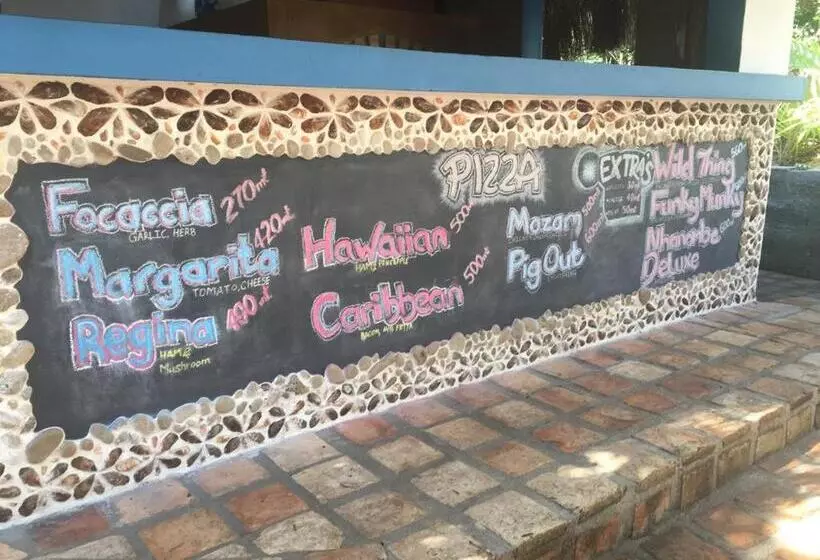 PIZZA
Focaccia 270 mt
GARLIC, HERB
Margarita 420 mt
TOMATO, CHEESE
Regina 490 mt
HAM &
Mushroom
Hawaiian 500 mt
HAM & PINEAPPLE
Caribbean 500 mt
BACON, AVO, FETTA
Mozam
Pig Out
EXTRA'S
Wild Thing
Funky Munky
Nhanombe
Deluxe